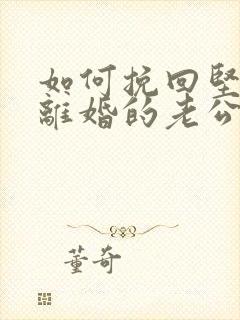 如何挽回坚
離婚的老公
董奇